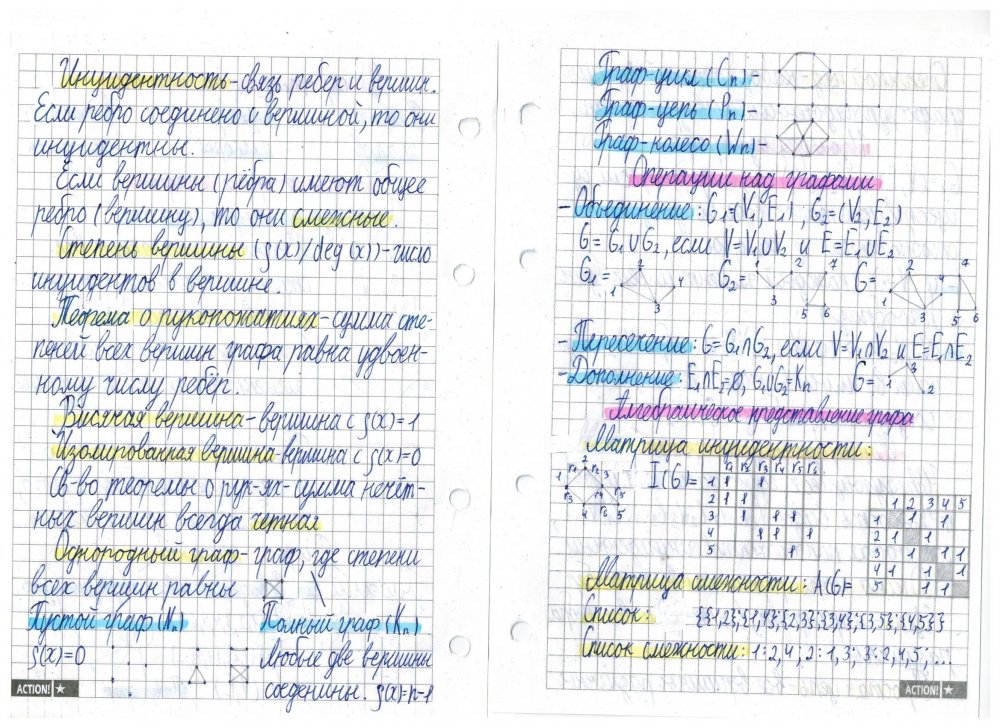 Инцидентность - связь ребер и вершин.
Если ребро соединено с вершиной, то они
инцидентны.
Если вершины (рёбра) имеют общее
ребро (вершину), то они смежные.
Степень вершины (ρ(x)/deg(x)) - число
инцидентов в вершине.
Теорема о рукопожатиях - сумма сте-
пеней всех вершин графа равна удвоен-
ному числу ребёр.
Висячая вершина - вершина с ρ(x)=1
Изолированная вершина - вершина с ρ(x)=0
Св-во теоремы о рук-ях - сумма нечёт-
ных вершин всегда четная
Однородный граф - граф, где степени
всех вершин равны
Пустой граф (Nn)
Полный граф (Kn)
ρ(x)=0
Любые две вершины
соеденины. ρ(x)=n-1
ACTION!
Граф-цикл (Cn) -
Граф-цепь (Pn) -
Граф-колесо (Wn) -
Операции над графами
- Объединение: G1=(V1,E1), G2=(V2,E2)
G=G1∪G2, если V=V1∪V2 и E=E1∪E2
G1= 1 2 3 4 G2= 1 2 3 5 6 7 G= 1 2 3 4 5 6 7
- Пересечение: G=G1∩G2, если V=V1∩V2 и E=E1∩E2
- Дополнение: E1∩E2=∅, G1∪G2=Kn G= 1 3 2
Алгебраическое представление графа
Матрица инцидентности:
1 r1 2 r2 3 r3 r4 r5 4 r6 5
I(G)= r1 r2 r3 r4 r5 r6
1 1 1
2 1 1
3 1 1 1
4 1 1 1
5 1
1 2 3 4 5
1 1 1
2 1 1
3 1 1 1
4 1 1 1
5 1 1
Матрица смежности: A(G)=
Список: {{1,2};{1,4};{2,3};{3,4};{3,5};{4,5}}
Список смежности: 1:2,4, 2:1,3; 3:2,4,5; ...
ACTION!